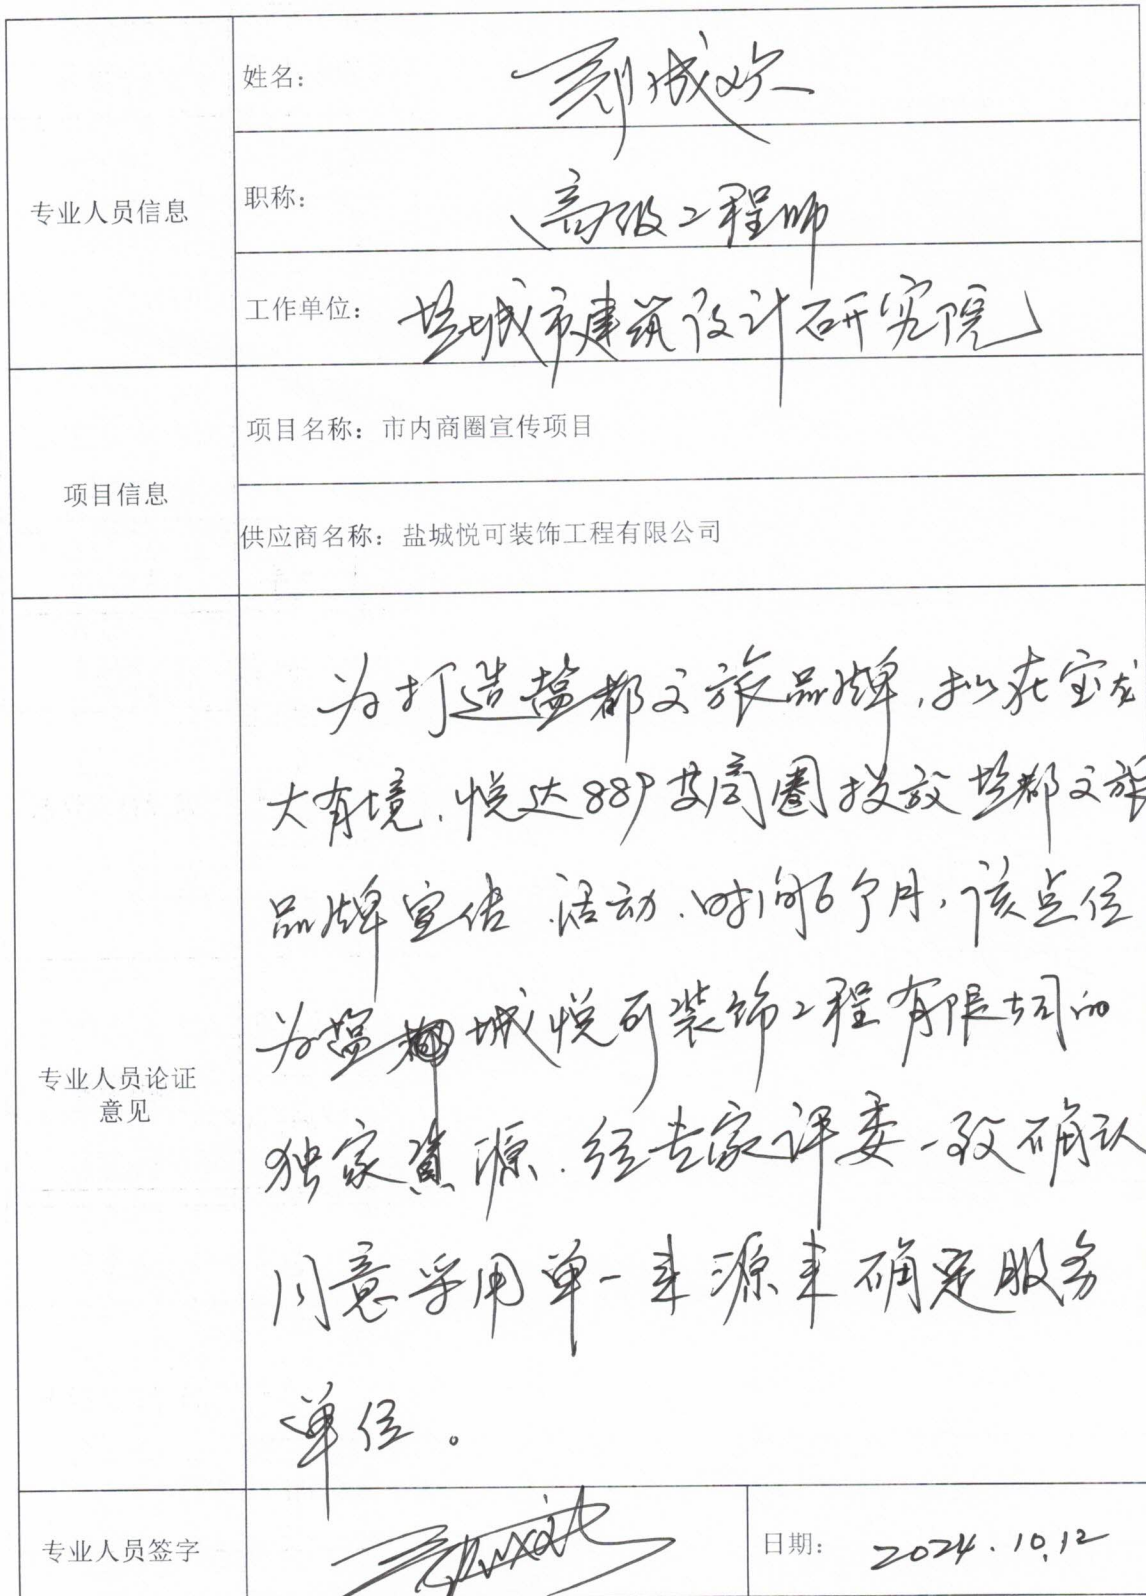 专业人员信息
姓名：
刘成欢
职称：
高级工程师
工作单位：
盐城市建筑设计研究院
项目信息
项目名称：市内商圈宣传项目
供应商名称：盐城悦可装饰工程有限公司
专业人员论证
意见
为打造盐都文旅品牌，拟在宝龙
大有境、悦达889等商圈投放盐都文旅
品牌宣传活动、时间6个月，该点位
为盐城悦可装饰工程有限公司的
独家资源．经专家评委一致确认
同意采用单一来源来确定服务
单位。
专业人员签字
日期：
2024.10.12